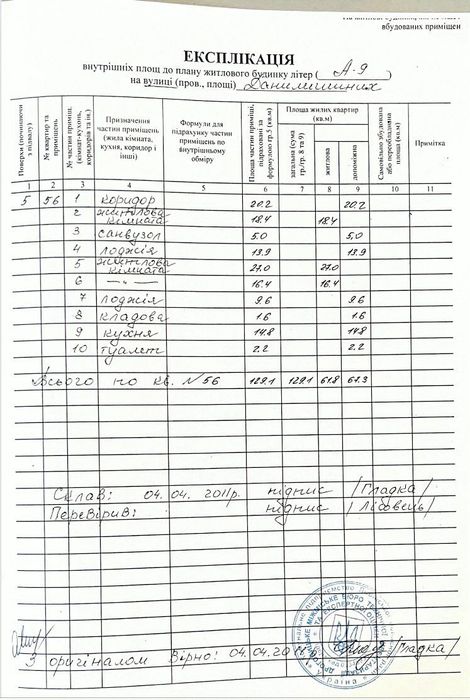 вбудованих приміщен
ЕКСПЛІКАЦІЯ
внутрішніх площ до плану житлового будинку літер ( А-9 )
на вулиці (пров., площі)
Поверхи (починаючи з підвалу)
№ квартир та приміщень
№ частин приміщ. (кімнат-кухонь, коридорів та ін.)
Призначення частин приміщень (жила кімната, кухня, коридор і інші)
Формули для підрахунку частин приміщень по внутрішньому обміру
Площа частин приміщ. підраховані за формулою гр.5 (кв.м)
Площа жилих квартир (кв.м)
загальні (сума гр./гр. 8 та 9)
житлова
допоміжна
Самовільно збудована або переобладнана площа (кв.м)
Примітка
1 2 3 4 5 6 7 8 9 10 11
5 56 1 коридор 20.2 20.2
2 житлова кімната 18.4 18.4
3 санвузол 5.0 5.0
4 лоджія 13.9 13.9
5 житлова кімната 27.0 27.0
6 —„— 16.4 16.4
7 лоджія 9.6 9.6
8 кладова 1.6 1.6
9 кухня 14.8 14.8
10 туалет 2.2 2.2
Всього по кв. №56 129.1 129.1 61.8 67.3
Склав: 04.04.2011р. підпис /Гладка/
Перевірив: підпис /Лібовець/
З оригіналом Вірно: 04.04.2011 /Гладка/
Україна